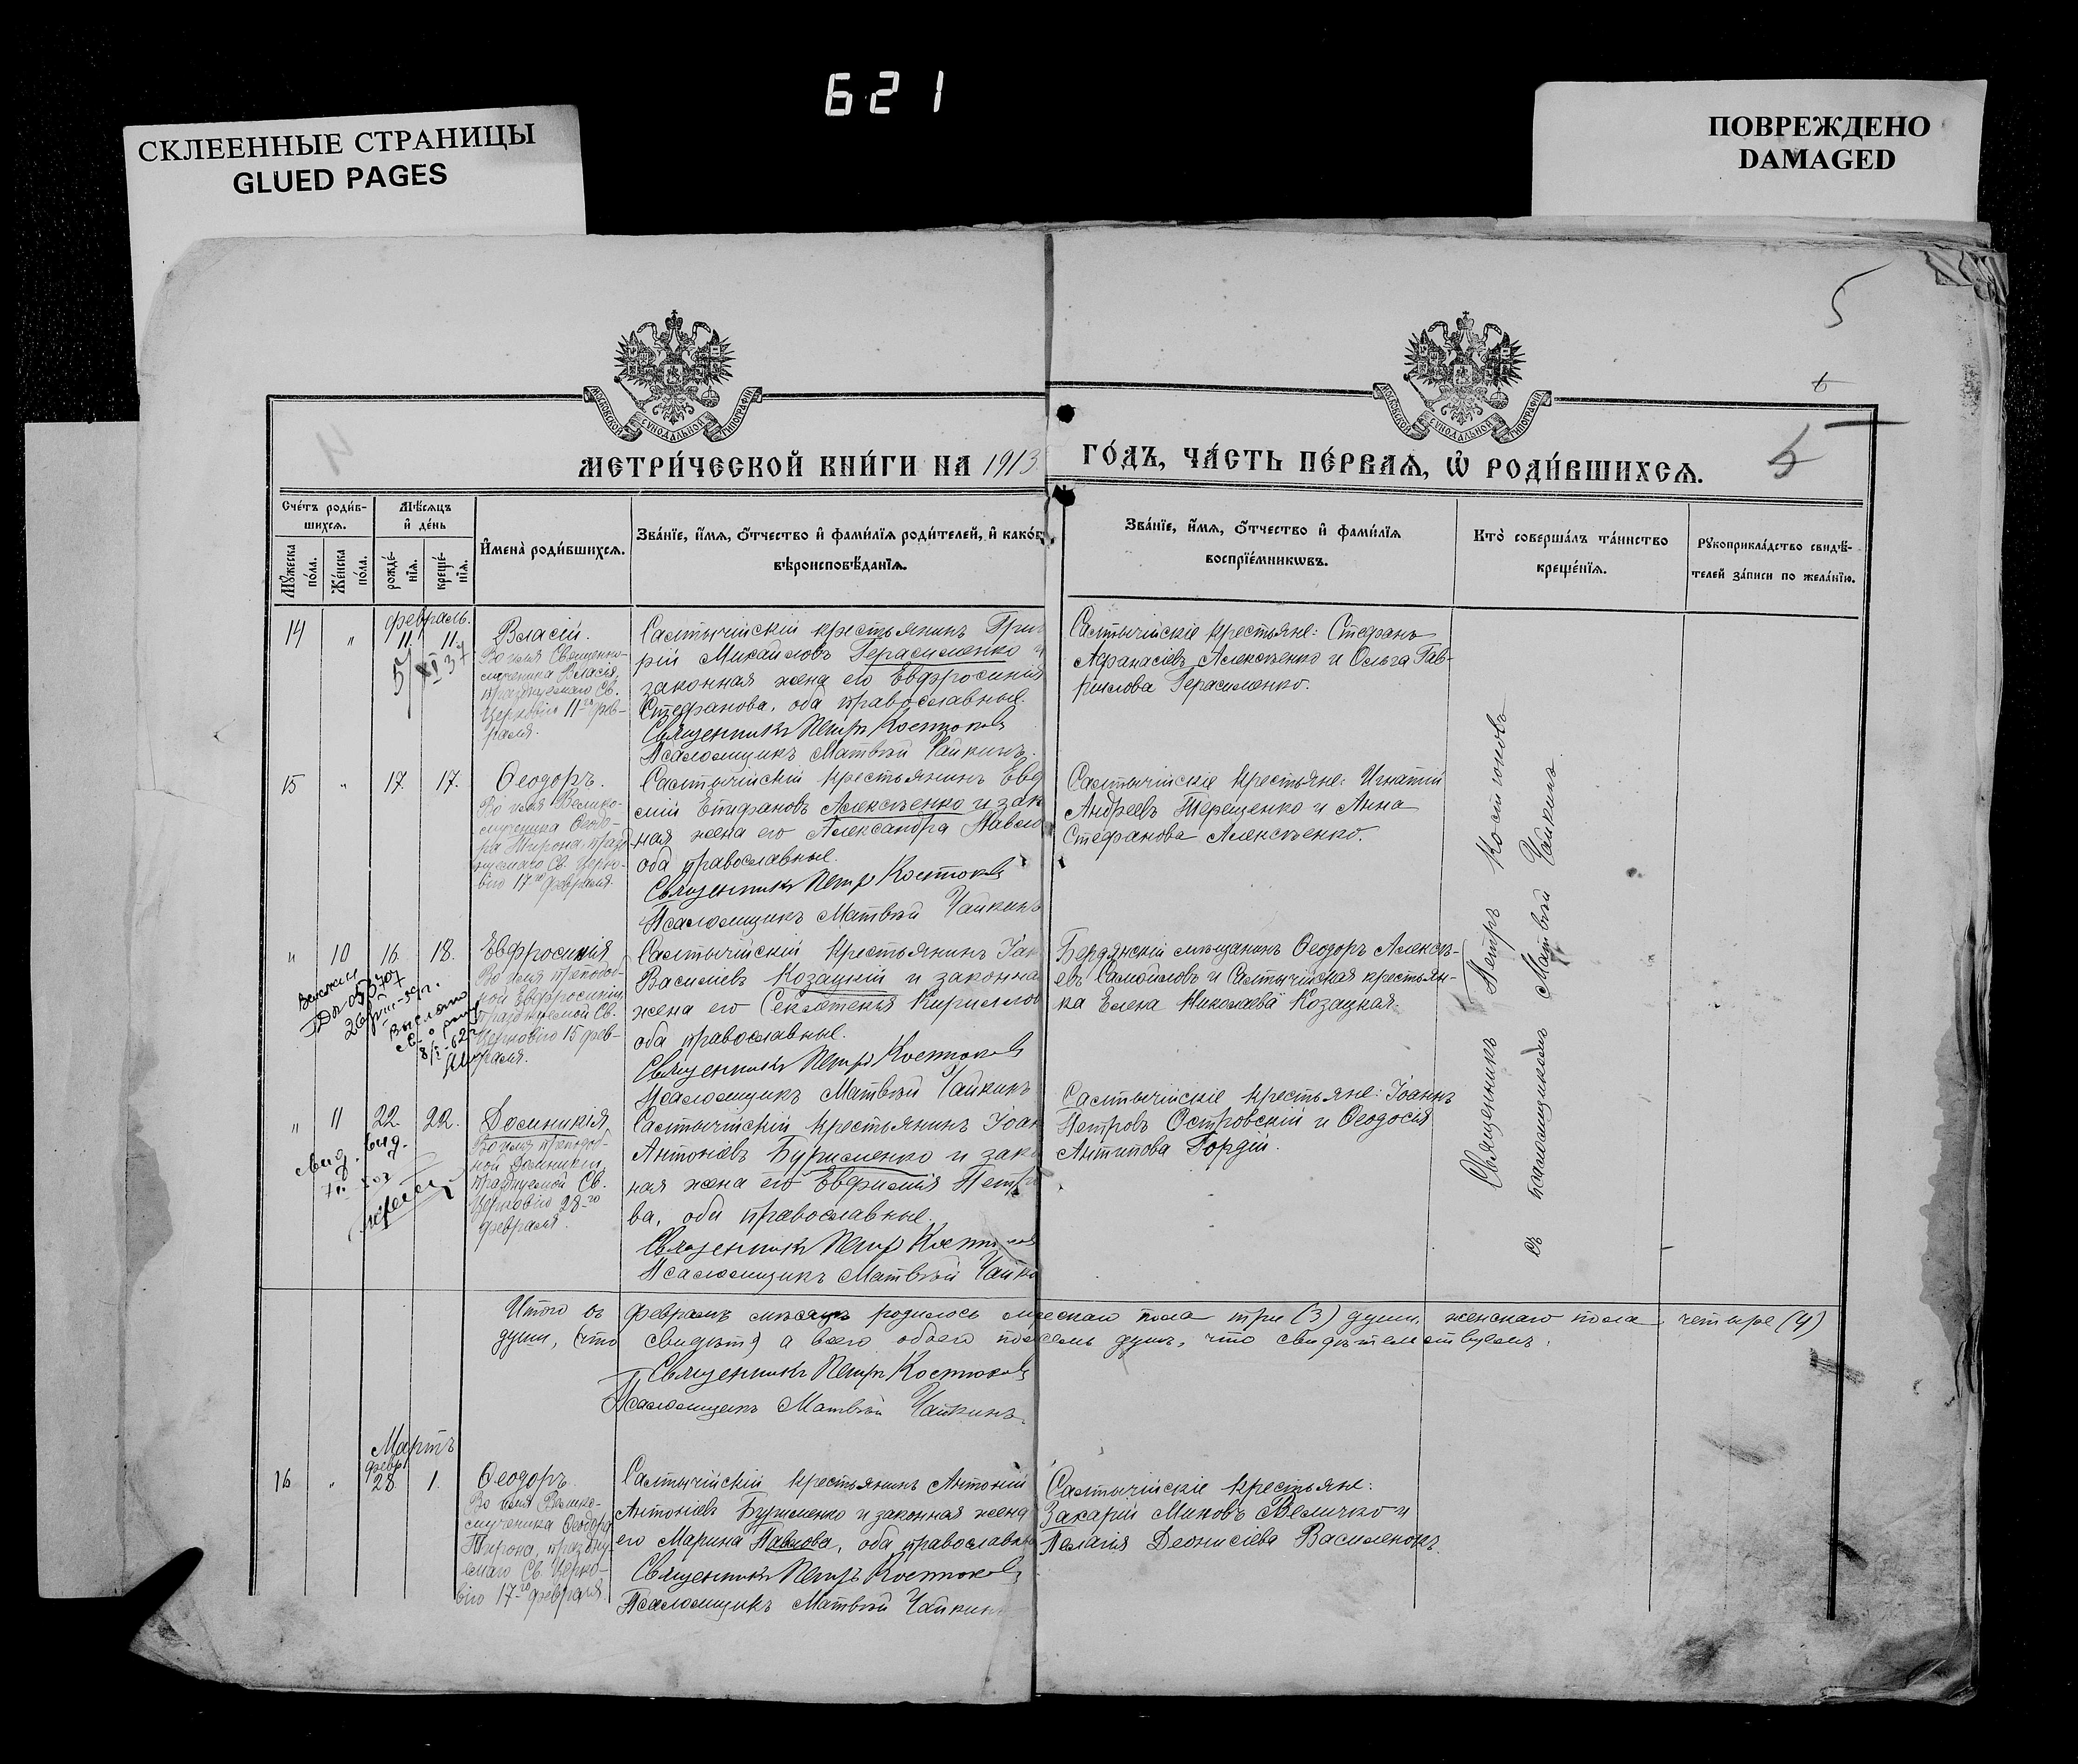 621
СКЛЕЕННЫЕ СТРАНИЦЫ
GLUED PAGES
ПОВРЕЖДЕНО
DAMAGED
5
6
5
4
МОСКОВСКОЙ СѴНОДАЛЬНОЙ ТИПОГРАФІИ
МОСКОВСКОЙ СѴНОДАЛЬНОЙ ТИПОГРАФІИ
МЕТРИ́ЧЕСКОЙ КНИ́ГИ НА 1913 ГО́ДЪ, ЧА́СТЬ ПЕ́РВАѦ, Ѡ҆ РОДИ́ВШИХСѦ.
Сче́тъ роди́в-
шихсѧ.
Мѹ́жеска по́ла.
Же́нска по́ла.
Мѣ́сѧцъ и҆ де́нь
рожде́-
нїѧ.
креще́-
нїѧ.
И҆мена̀ роди́вшихсѧ.
Зва́нїе, и҆́мѧ, ѻ҆́тчество и҆ фами́лїѧ роди́телей, и҆ како́г
вѣроисповѣ́данїѧ.
Зва́нїе, и҆́мѧ, ѻ҆́тчество и҆ фами́лїѧ
воспрїе́мникѡвъ.
Кто̀ соверша́лъ та́инство
креще́нїѧ.
Рꙋкоприкла́дство свидѣ́-
телей за́писи по жела́нїю.
февраль.
14 " 11 11 Власій.
Во имя Священно-
мученика Власія,
празднуемаго Св.
Церковію 11го фев-
раля.
Салтычійскій крестьянинъ Григ
рій Михайловъ Герасименко и
законная жена его Евфросинія
Стефанова, оба православные.
Священникъ Петръ Костюковъ
Псаломщикъ Матвѣй Чайкинъ.
Салтычійскіе крестьяне: Стефанъ
Афанасіевъ Алексѣенко и Ольга Гав-
рилова Герасименко.
15 " 17. 17. Ѳеодоръ.
Во имя Велико-
мученика Ѳеодо-
ра Тирона, празд
нуемаго Св. Церко-
вію 17го февраля.
Салтычійскій крестьянинъ Евд
Стефановъ Алексѣенко и зак
ная жена его Александра Павло
оба православные.
Священникъ Петръ Костюковъ
Псаломщикъ Матвѣй Чайкинъ
Салтычійскіе крестьяне: Игнатій
Андреевъ Терещенко и Анна
Стефанова Алексѣенко.
" 10 16. 18. Евфросинія
Во имя преподоб-
ной Евфросиніи,
празднуемой Св.
Церковію 15 фев-
раля.
Салтычійскій крестьянинъ Іак
Василіевъ Козацкій и законна
жена его Секлетенія Кириллов
оба православные.
Священникъ Петръ Костюковъ
Псаломщикъ Матвѣй Чайкинъ
Бердянскій мѣщанинъ Ѳеодоръ Алексѣ-
евъ Самойловъ и Салтычійская крестьян-
ка Елена Николаева Козацкая.
" 11 22. 22. Домникія,
Во имя преподоб-
ной Домникіи,
празднуемой Св.
Церковію 28го
февраля.
Салтычійскій крестьянинъ Іоан
Антоніевъ Бурименко и зако
ная жена его Евфимія Петро
ва, оба православные.
Священникъ Петръ Костюковъ
Псаломщикъ Матвѣй Чайки
Салтычійскіе крестьяне: Іоаннъ
Петровъ Островскій и Ѳеодосія
Антипова Гордій.
Священникъ Петръ Костюковъ
съ псаломщикомъ Матвѣй Чайкинъ
Итого въ февралѣ мѣсяцѣ родилось мужескаго пола три (3) души, женскаго пола четыре (4)
души, (что свидѣт) а всего обоего пол семь душъ, что свидѣтельствуемъ.
Священникъ Петръ Костюковъ
Псаломщикъ Матвѣй Чайкинъ
Мартъ
февр.
16 " 28 1. Ѳеодоръ.
Во имя Велико-
мученика Ѳеодора
Тирона, праздну
емаго Св. Церко-
вію 17го февраля.
Салтычійскій крестьянинъ Антоній
Антоніевъ Бурименко и законная жена
его Марина Павлова, оба православны
Священникъ Петръ Костюковъ
Псаломщикъ Матвѣй Чайкин
Салтычійскіе крестьяне:
Захарій Миновъ Величко и
Пелагія Діонисіева Василенокъ.